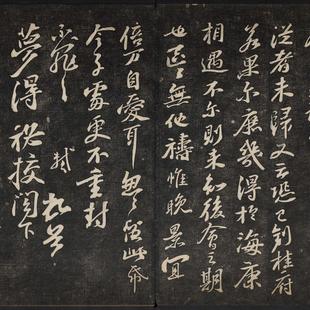 從者未歸又云恐已到桂府
若果尔庶幾得於海康
相遇不尔則未知後會之期
也區〻無他禱惟晚景宜
倍万自愛耳忽〻留此帋
令子處更不重封
不罪〻
軾頓首
夢得秘校閣下